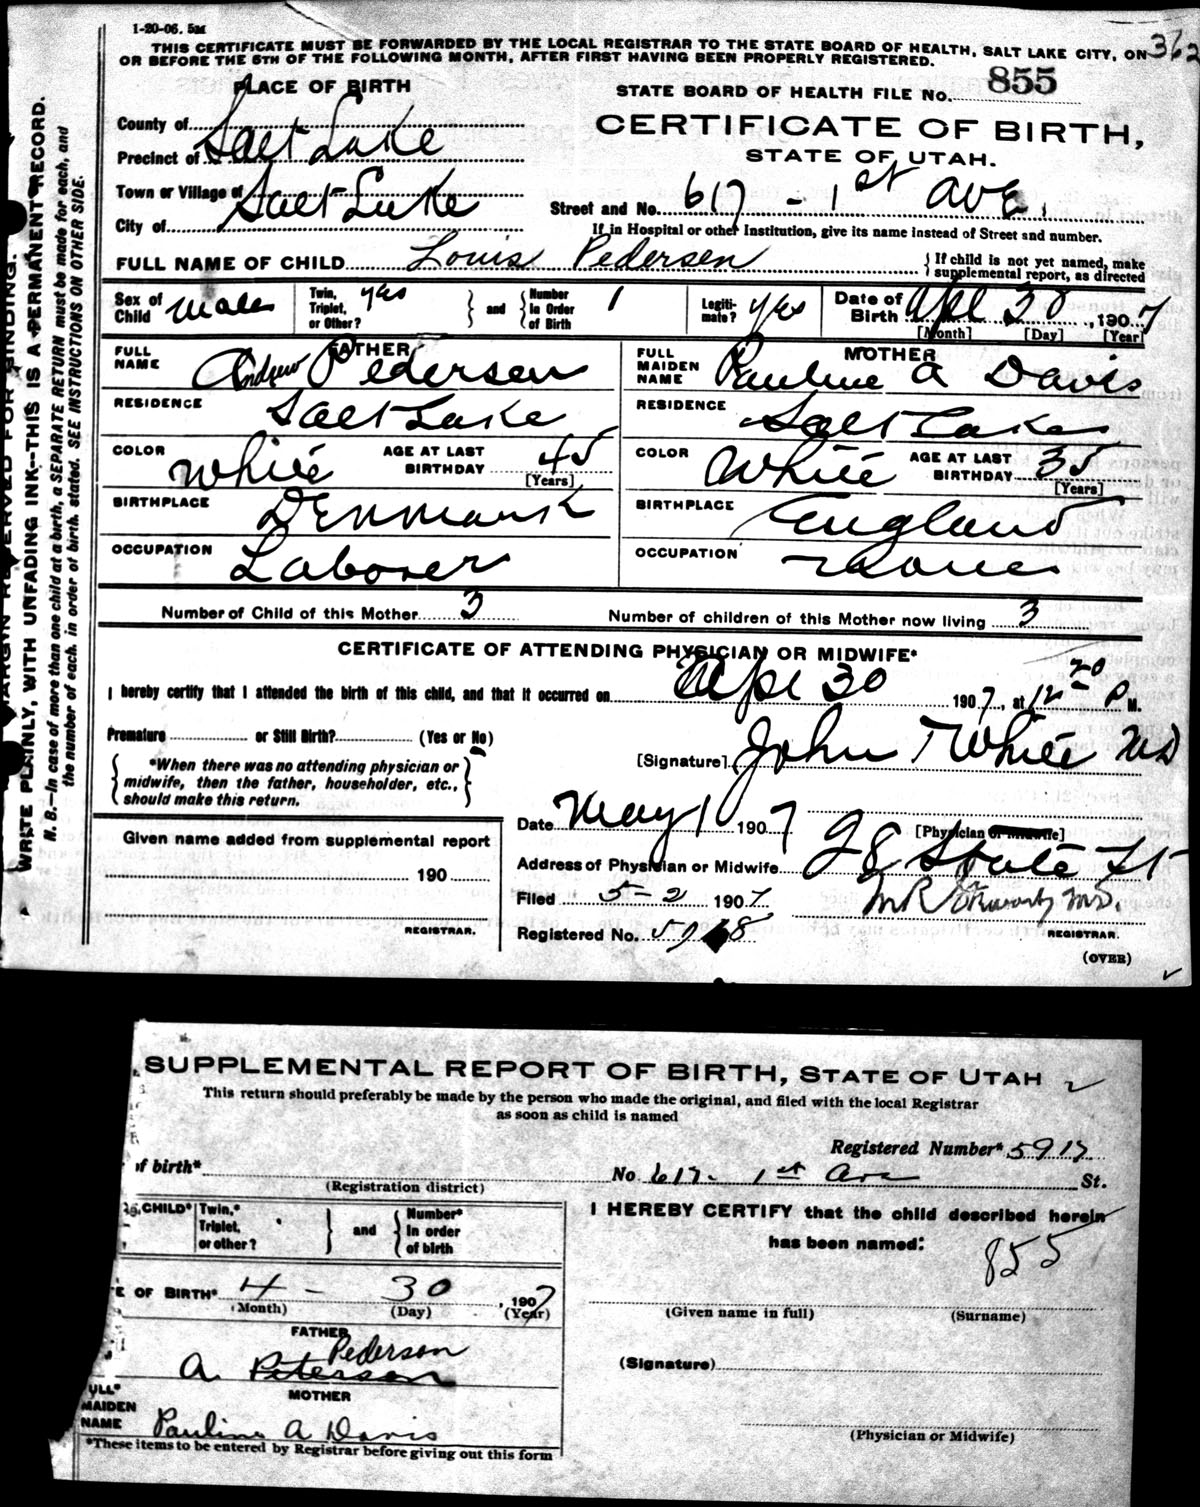 1-20-06. 5M
THIS CERTIFICATE MUST BE FORWARDED BY THE LOCAL REGISTRAR TO THE STATE BOARD OF HEALTH, SALT LAKE CITY, ON 362
OR BEFORE THE 5TH OF THE FOLLOWING MONTH, AFTER FIRST HAVING BEEN PROPERLY REGISTERED.
PLACE OF BIRTH
STATE BOARD OF HEALTH FILE No. 855
County of Salt Lake
Precinct of
Town or Village of Salt Lake
City of
CERTIFICATE OF BIRTH,
STATE OF UTAH.
Street and No. 617 - 1st Ave.
If in Hospital or other Institution, give its name instead of Street and number.
FULL NAME OF CHILD Louis Pedersen
If child is not yet named, make
supplemental report, as directed
Sex of Child Male
Twin, Triplet, or Other? yes
and
Number In Order of Birth 1
Legiti- mate? yes
Date of Birth Apl 30, 1907
[Month] [Day] [Year]
FATHER
FULL NAME Andrew Pedersen
MOTHER
FULL MAIDEN NAME Pauline A Davis
RESIDENCE Salt Lake
RESIDENCE Salt Lake
COLOR White
AGE AT LAST BIRTHDAY 45
[Years]
COLOR White
AGE AT LAST BIRTHDAY 35
[Years]
BIRTHPLACE Denmark
BIRTHPLACE England
OCCUPATION Laborer
OCCUPATION None
Number of Child of this Mother 3
Number of children of this Mother now living 3
CERTIFICATE OF ATTENDING PHYSICIAN OR MIDWIFE*
I hereby certify that I attended the birth of this child, and that it occurred on Apl 30 1907, at 12 20 P M.
Premature or Still Birth? (Yes or No)
[Signature] John T White MD
*When there was no attending physician or
midwife, then the father, householder, etc.,
should make this return.
Date May 1 1907
[Physician or Midwife]
Given name added from supplemental report
190
REGISTRAR.
Address of Physician or Midwife 28 State St
Filed 5-2 1907
M.D.
REGISTRAR.
Registered No.
(OVER)
MARGIN RESERVED FOR BINDING.
WRITE PLAINLY, WITH UNFADING INK--THIS IS A PERMANENT RECORD.
N. B.—In case of more than one child at a birth, a SEPARATE RETURN must be made for each, and
the number of each, in order of birth, stated. SEE INSTRUCTIONS ON OTHER SIDE.
SUPPLEMENTAL REPORT OF BIRTH, STATE OF UTAH
This return should preferably be made by the person who made the original, and filed with the local Registrar
as soon as child is named
Registered Number* 5917
of birth*
(Registration district)
No 617 - 1st Ave St.
CHILD*
Twin,* Triplet, or other?
and
Number* In order of birth
I HEREBY CERTIFY that the child described herein
has been named:
855
E OF BIRTH* 4 - 30, 1907
(Month) (Day) (Year)
(Given name in full) (Surname)
FATHER
Pederson
A. Peterson
(Signature)
MOTHER
ULL* MAIDEN NAME Pauline A Davis
(Physician or Midwife)
*These items to be entered by Registrar before giving out this form